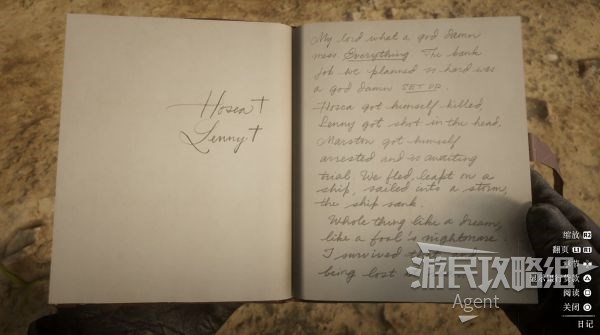 Hosea †
Lenny †
My lord what a god damn
mess. Everything. The bank
job we planned so hard was
a god damn SET UP.
Hosea got himself killed,
Lenny got shot in the head,
Marston got himself
arrested and is awaiting
trial. We fled, leapt on a
ship, sailed into a storm,
the ship sank.
Whole thing like a dream,
like a fool's nightmare.
I survived
being lost
游民攻略组
Agent
缩放 R2
翻页 L1 R1
阅读
关闭
日记